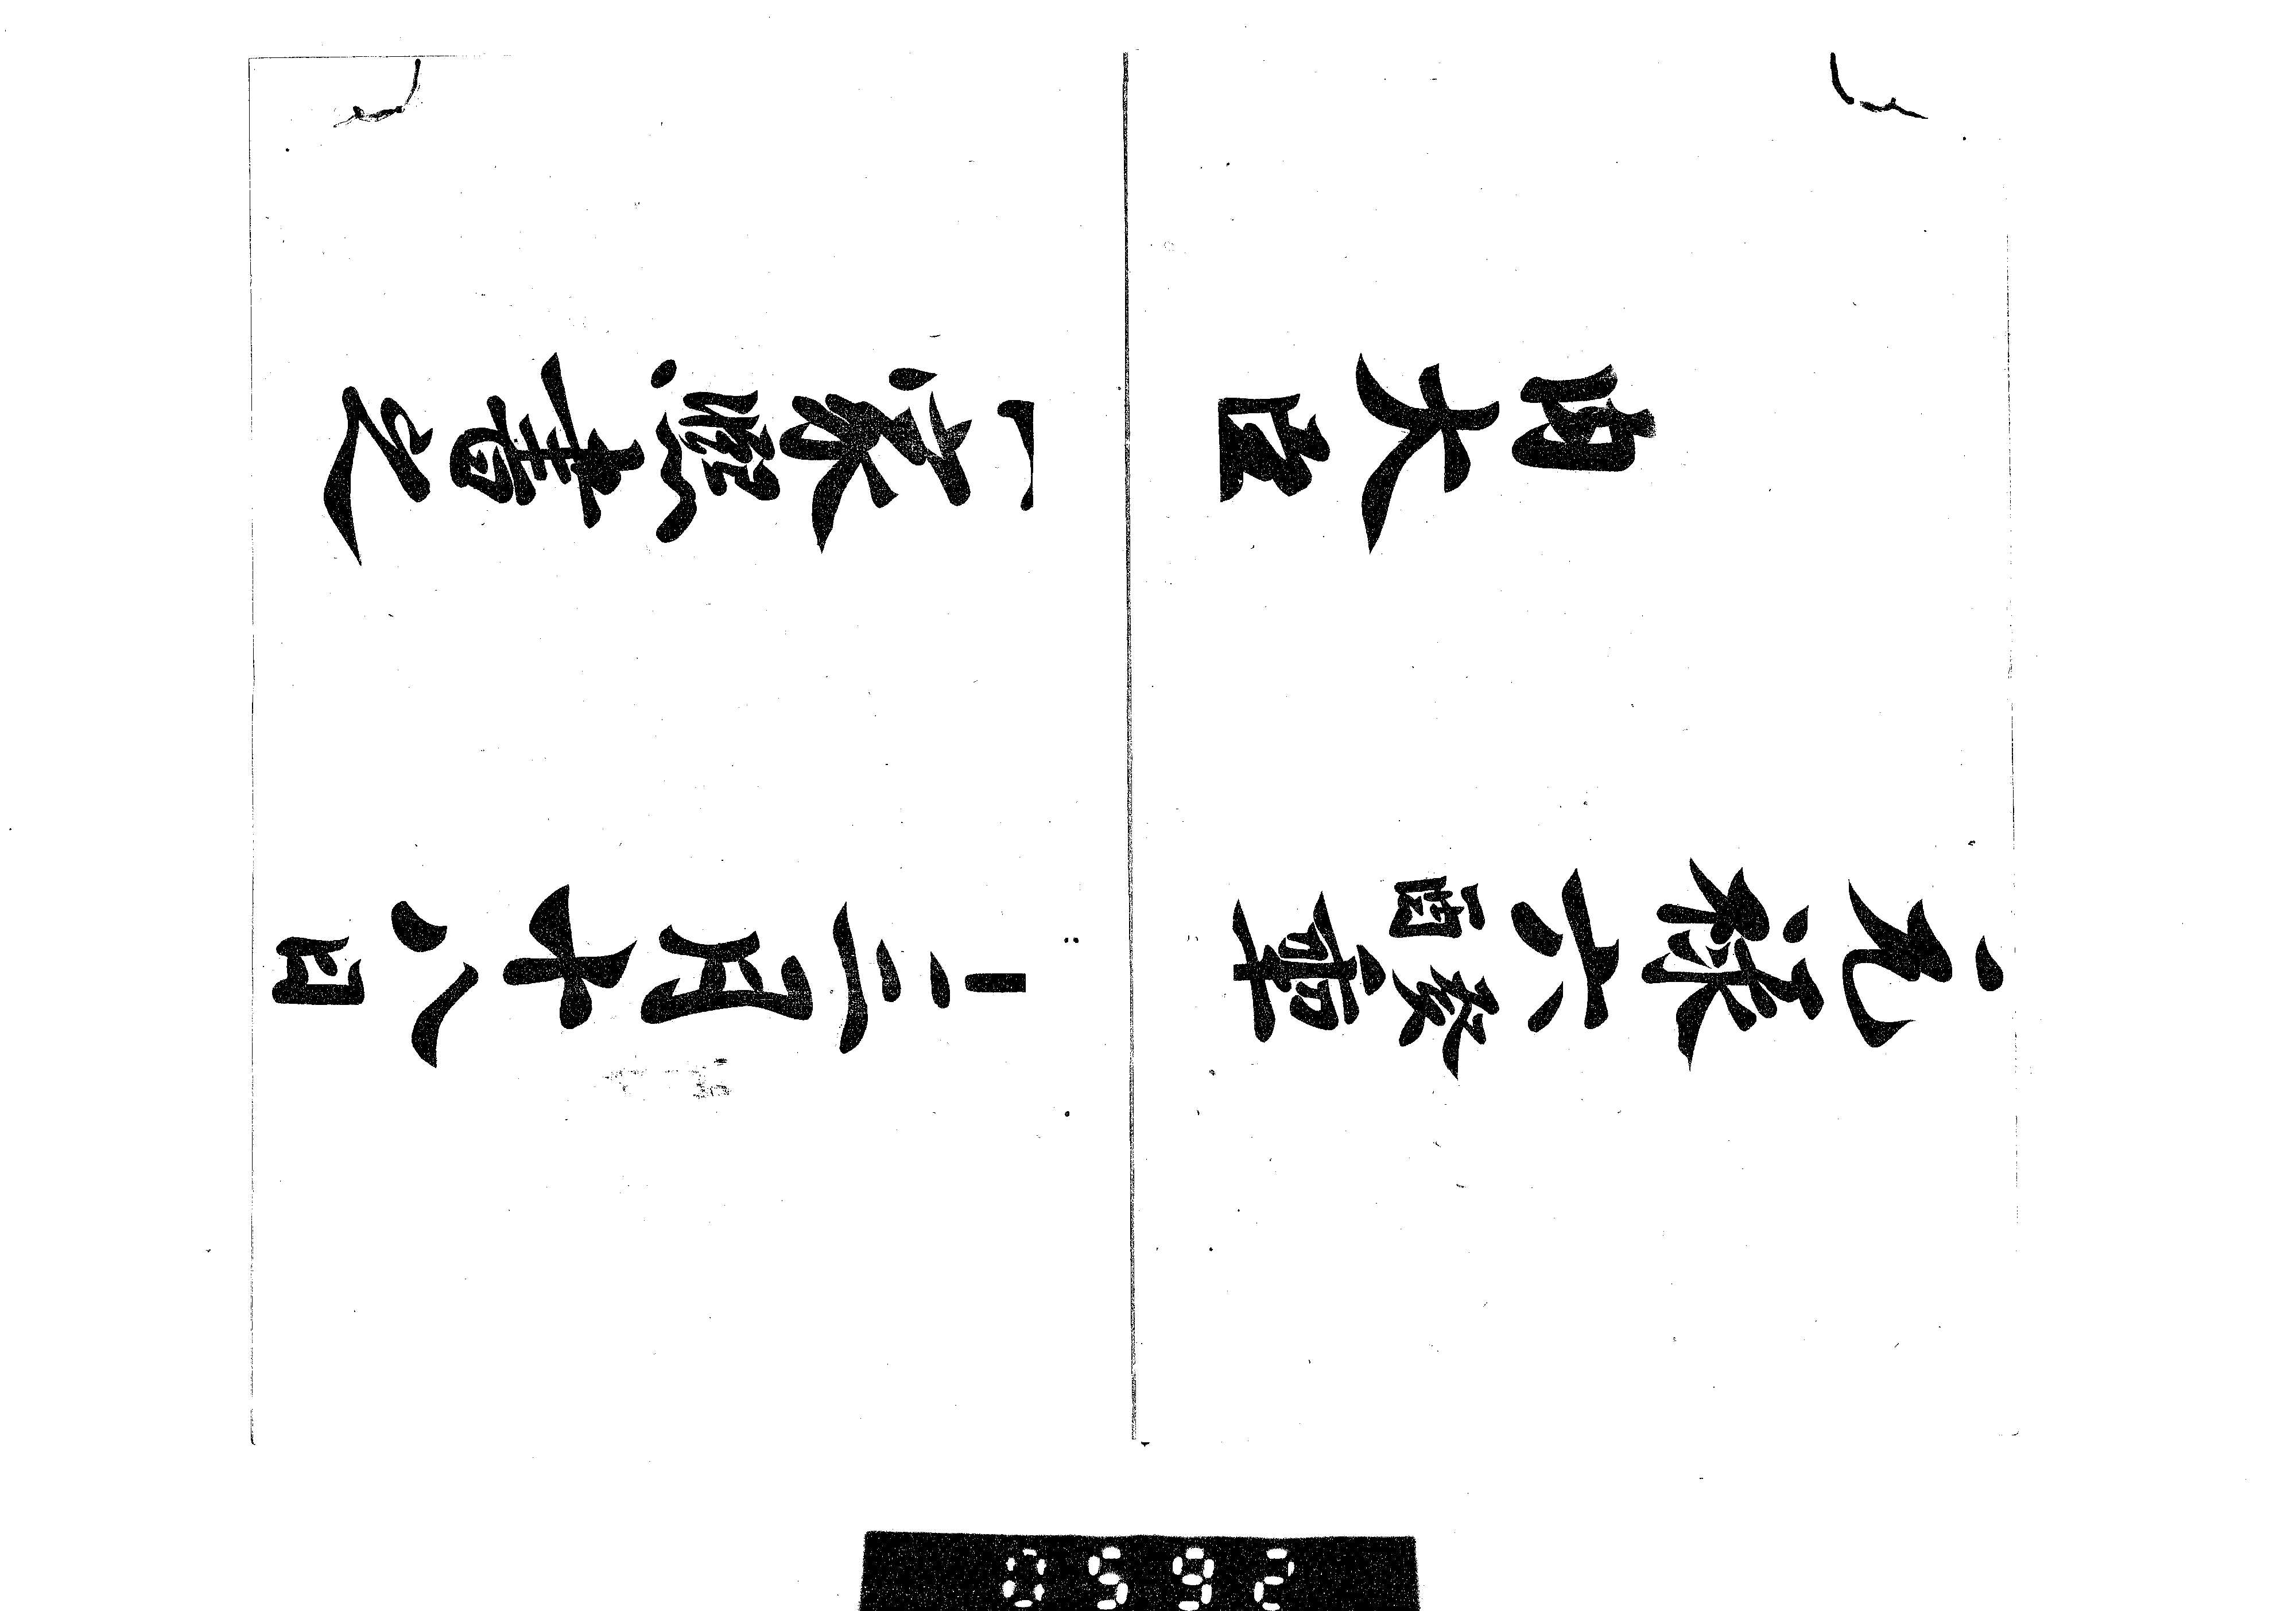 元禄六癸酉年三月十八日
内大臣家凞書之
0592